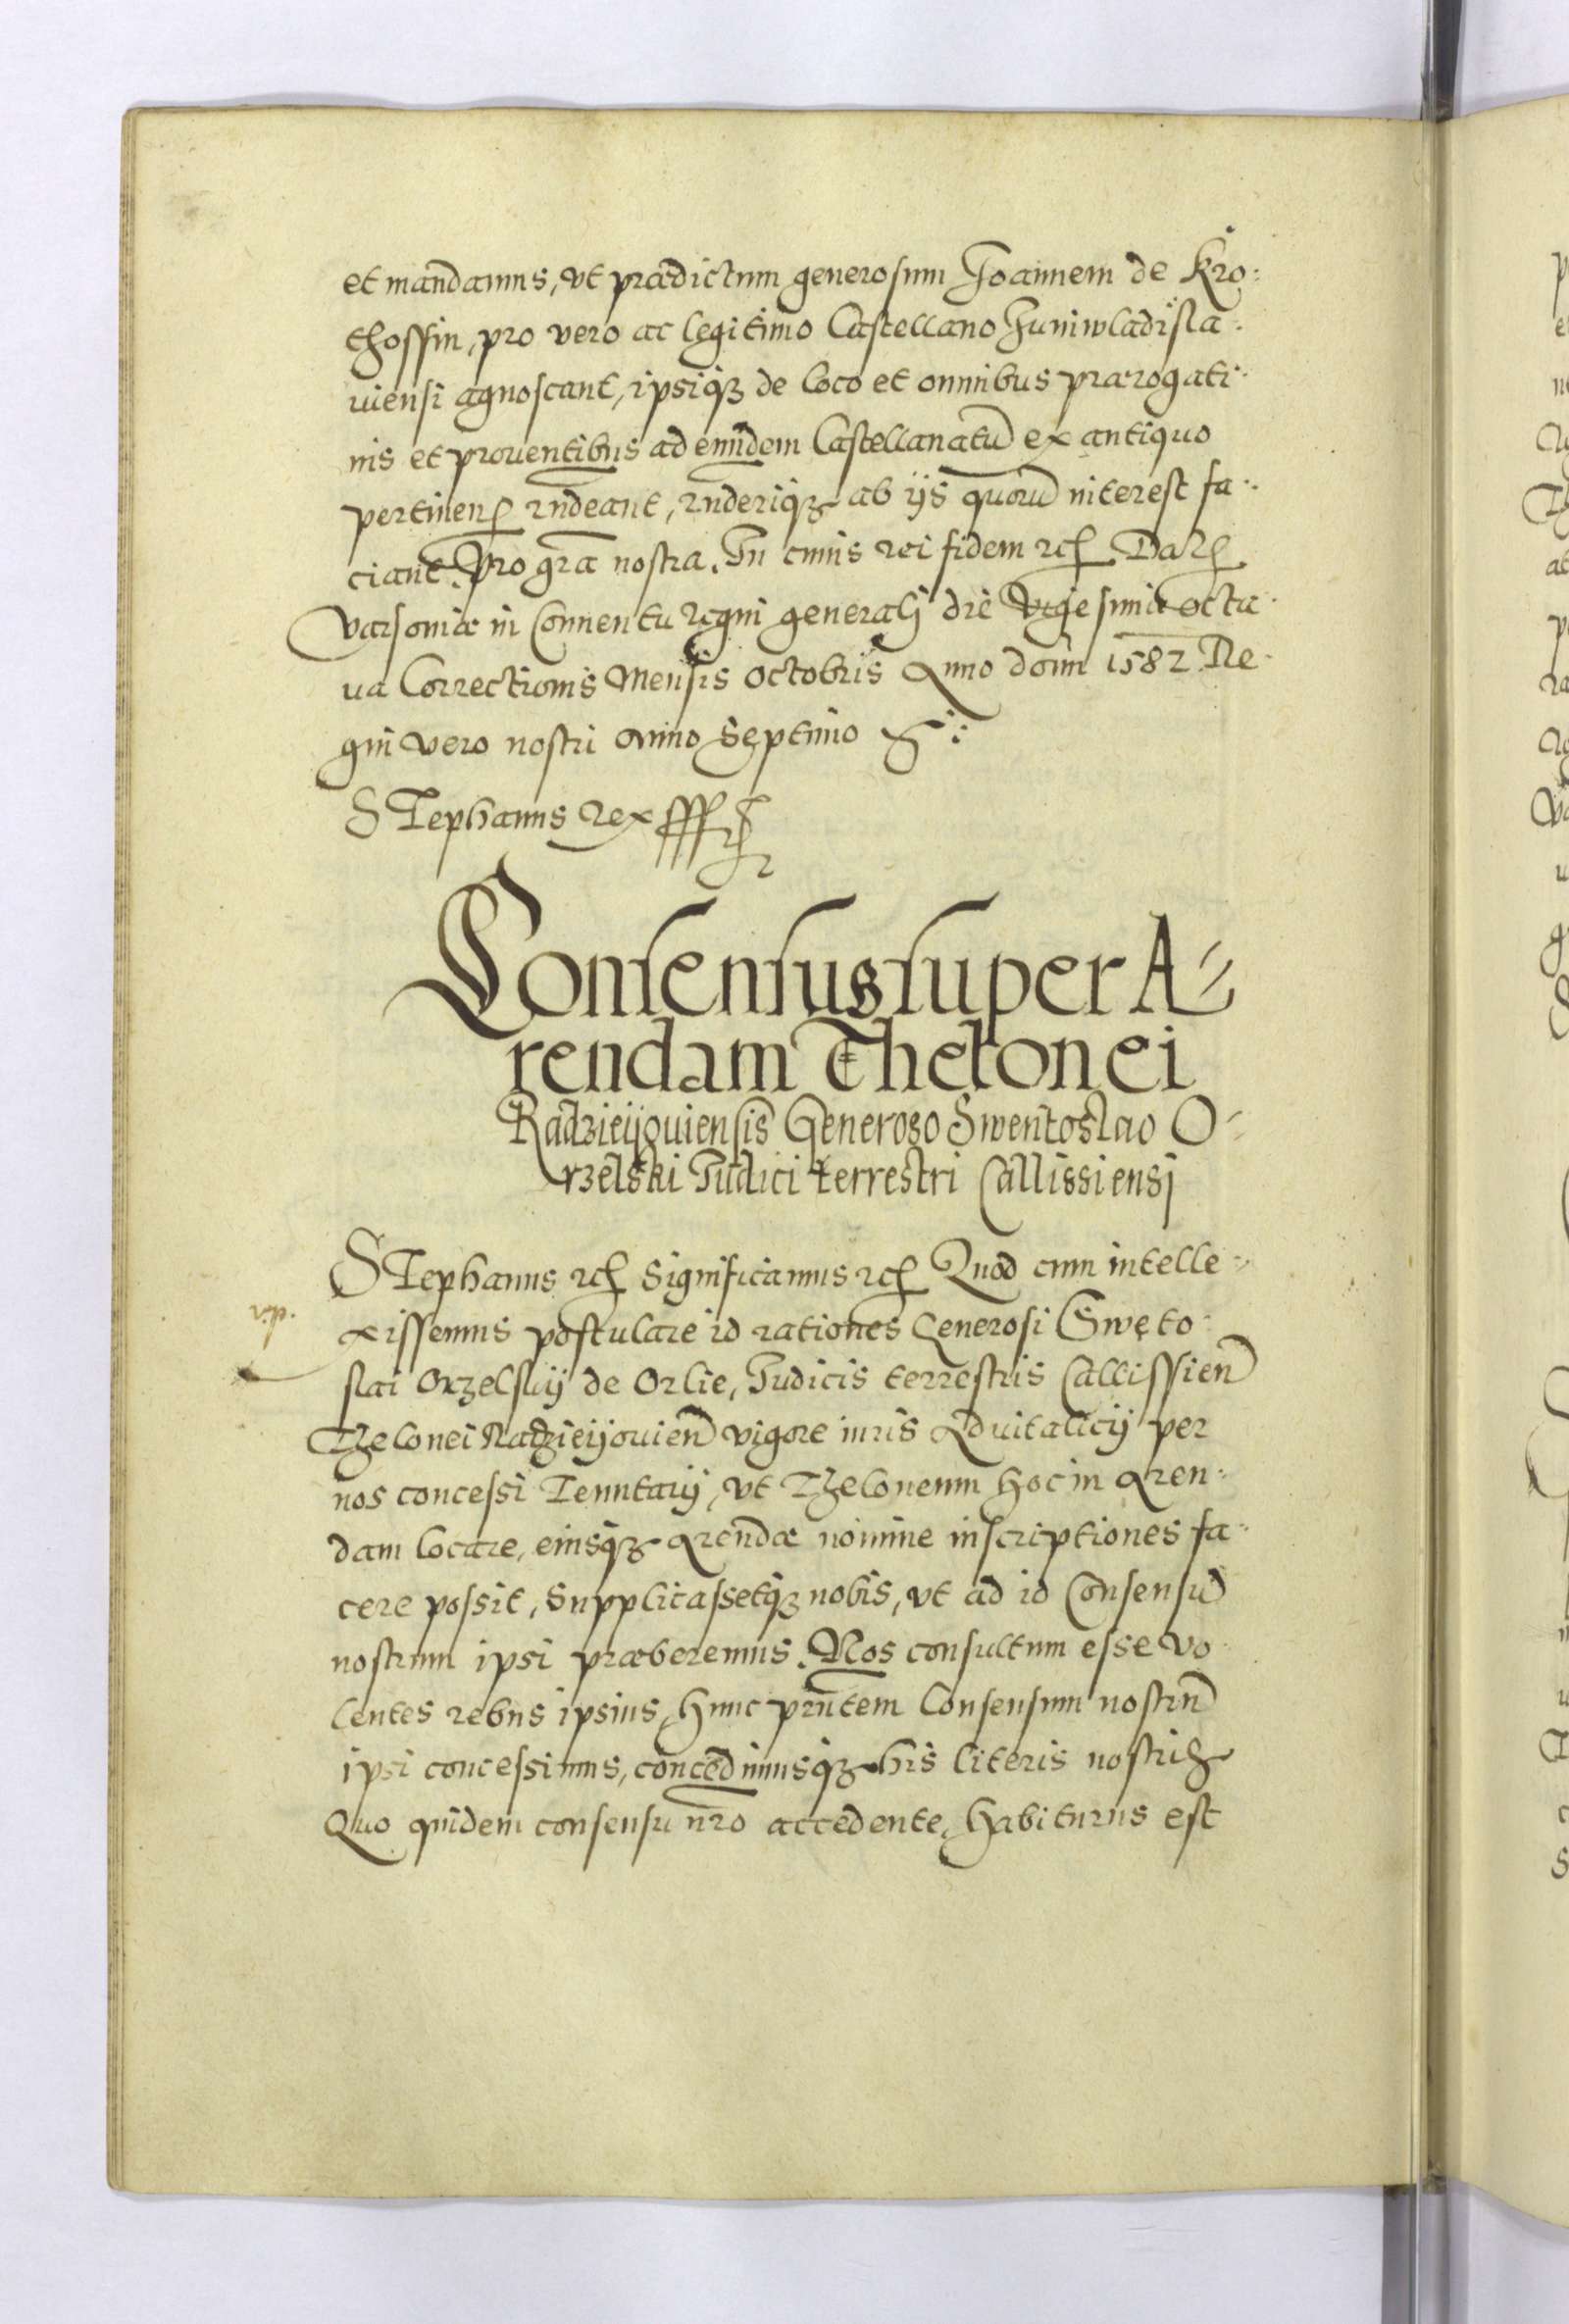 et mandamus, vt prædictum generosum Joannem de Kro:
thossin, pro vero ac legitimo Castellano Juniwladisla:
uiensi agnoscant, ipsiqȝ de loco et omnibus prærogati:
uis et prouentibus ad eundem Castellanatū ex antiquo
pertinen rn̄deant, rn̄deriqȝ ab ijs quorū interest fa:
ciant. Pro gr̄a nostra. In cuius rei fidem etc. Dat
Varsouiæ in Conuentu Regni generalj die Vigesima octa
ua Correctionis Mensis Octobris Anno domī 1582 Re
gni vero nostri anno Septimo
Stephanus Rex
Consensus super A=
rendam Thelonei
Radzieijouiensis Generoso Swentoslao O=
rzelski Judici terrestri Callissiensj
Stephanus etc. Significamus etc. Quod cum intelle=
xissemus postulare id rationes Generosi Swęto:
slai Orzelskij de Orlie, Judicis terrestris Callissien̄
Thelonei Radzieijouien̄ vigore iuris Aduitalicij per
nos concessi Tenutarij, vt Theloneum hoc in Aren:
dam locare, eiusqȝ Arendæ nomine inscriptiones fa:
cere possit, Supplicassetqȝ nobis, vt ad id Consensū
nostrum ipsi præberemus. Nos consultum esse vo
lentes rebus ipsius, hunc prn̄tem Consensum nostrū
ipsi concessimus, concedimusqȝ his literis nostris
Quo quidem consensu nr̄o accedente, habiturus est